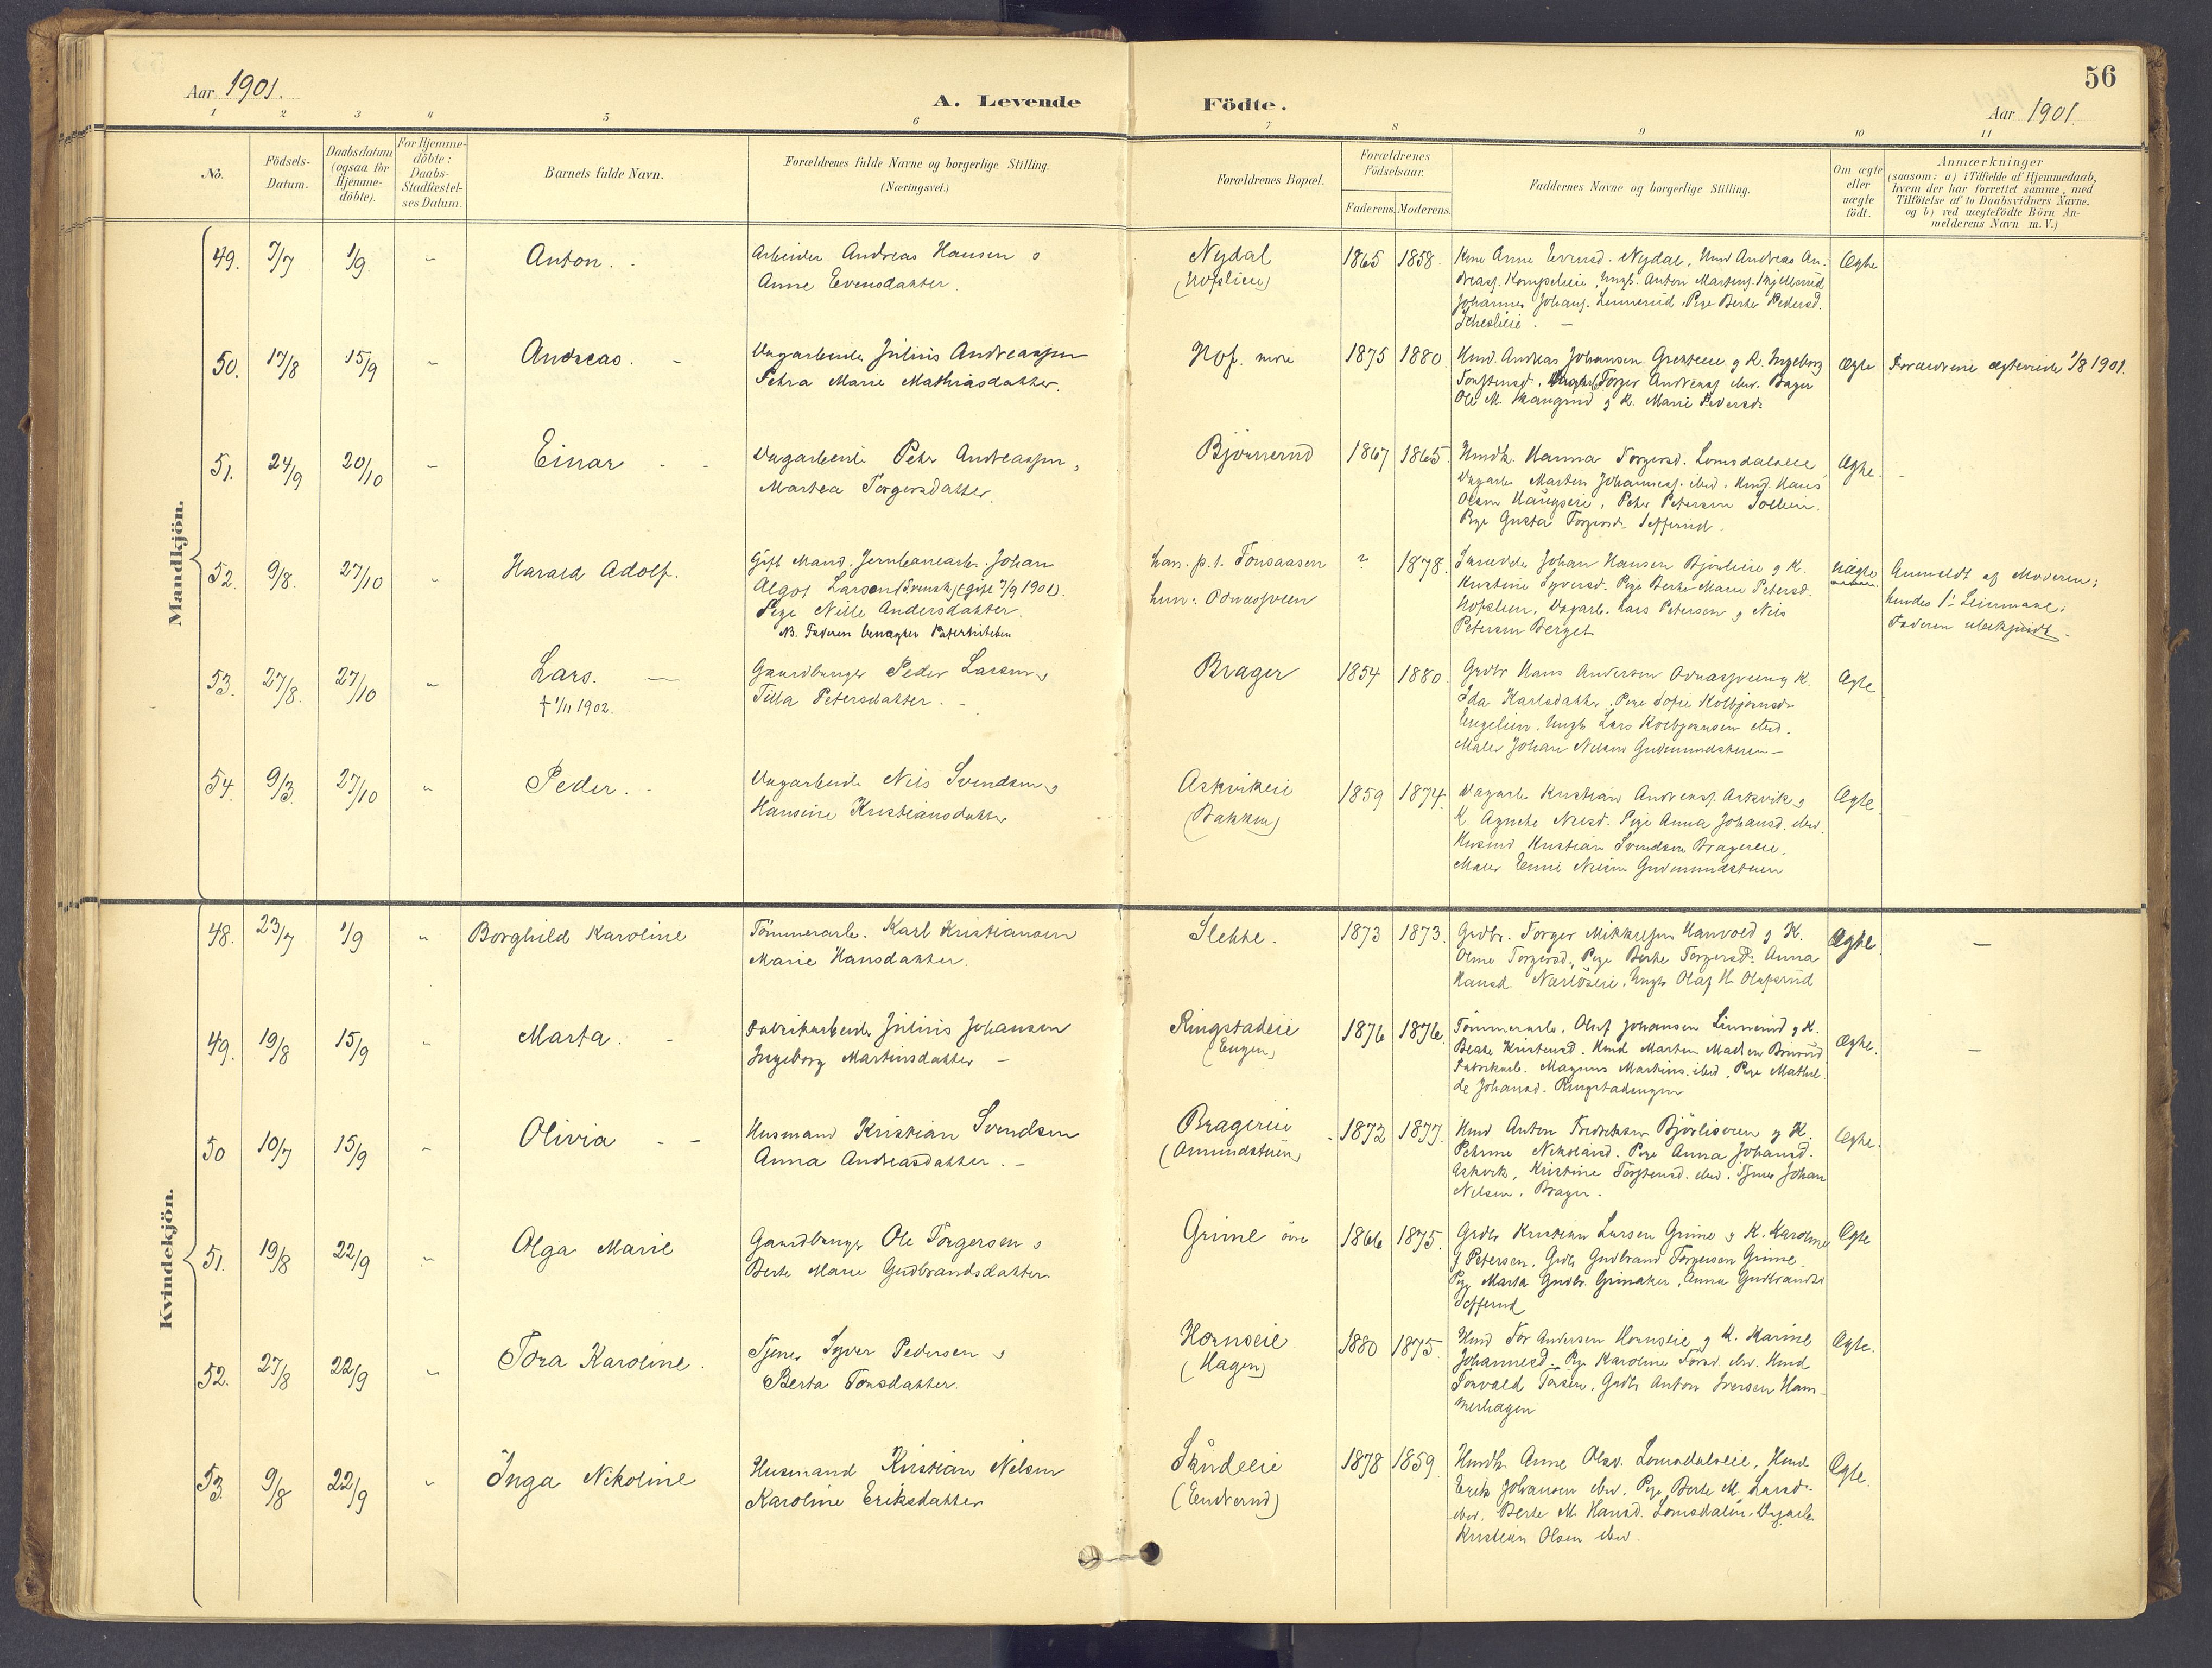 56
Aar 1901.
A. Levende
Födte.
Aar 1901.
1 2 3 4 5 6 7 8 9 10 11
No.
Födsels-
Datum.
Daabsdatum
(ogsaa för
Hjemme-
döbte).
For Hjemme-
döbte:
Daabs-
Stadfæstel-
ses Datum.
Barnets fulde Navn.
Forældrenes fulde Navne og borgerlige Stilling.
(Næringsvei.)
Forældrenes Bopæl.
Forældrenes
Födselsaar.
Faderens. Moderens.
Faddernes Navne og borgerlige Stilling.
Om ægte
eller
uægte
födt.
Anmærkninger
(saasom: a) i Tilfælde af Hjemmedaab,
hvem der har forrettet samme, med
Tilföielse af to Daabsvidners Navne.
og b) ved uægtefödte Börn An-
melderens Navn m.V.)
Mandkjön.
49. 7/7 1/9 Anton.
Arbeider Andreas Hansen o
Anne Evensdatter.
Nydal
(Hofslien)
1865 1858.
Kone Anne Evensd. Nydal, Hmd Andreas An-
Johannes Johans. Linnerud, Pige Berte Pedersd.
Ægte
50. 17/8 15/9 Andreas.
Dagarbeider Julius Andreassen
Petra Marie Mathiasdatter.
Hof. nedre
1875 1880.
Hmd. Andreas Johansen g K. Ingeborg
Torstensd. Torger Andreass ibid.
Ole M. Haugrud g K. Marie Pedersd.
Ægte
Forældrene ægteviede 1/8 1901.
51. 24/9 20/10 Einar
Dagarbeider Peter Andreassen,
Martea Torgersdatter.
Björnerud
1867 1865.
Hmdk. Hanna Torgersd. Lomsdalseie
Dagarb. Martin Johanness. ibid. Hmd. Hans
Olsen Haugseie, Peter Petersen Sollien.
Pige Gusta Torgersd. Sefferud.
Ægte.
52. 9/8. 27/10 Harald Adolf.
Gift Mand. Jernbanearb. Johan
Algot Larson (Svensk) (gift 7/9 1901).
Pige Nille Andersdatter.
NB. Faderen benægter Paterniteten
han: p.t. Tonsaasen
hun: Odnæsveen
? 1878.
Johan Hansen Björlieie g K.
Kristine Syversd. Pige Berte Marie Petersd.
Hofslien, Dagarb. Lars Petersen g Nils
Petersen Berget
Uægte
Anmeldt af Moderen;
hendes 1ste Leiermaal;
Faderen ubekjendt.
53. 27/8. 27/10 Lars.
† 1/11 1902.
Gaardbruger Peder Larsen o
Tilla Petersdatter.
Brager
1854 1880.
Grdbr Hans Andersen Odnæsveen g K.
Ida Karlsdatter, Pige Sofie Kolbjörnsdr
Engelien, Ungk Lars Kolbjörnsen ibid.
Maler Johan Nelson Gudmundsteien
Ægte
54. 9/3. 27/10 Peder.
Dagarbeider Nils Svendsen o
Hansine Kristiansdatter
Askvikeie
(Bakken)
1859 1874.
Dagarb. Kristian Andreass. Askvik o
K. Agnete Nilsd. Pige Anna Johansd. ibid.
Husmd Kristian Svendsen Bragereie.
Maler Emil Nilsen Gudmundstuen
Ægte.
Kvindekjön.
48. 23/7 1/9 Borghild Karoline
Tömmerarb. Karl Kristiansen
Marie Hansdatter.
Slette.
1873 1873.
Grdbr. Torger Mikkelsen Hanvold g K.
Oline Torgersd. Pige Berte Torgersd. Anna
Hansd. Ungk Olaf H. Olafsrud
Ægte.
49. 19/8 15/9 Marta.
Fabrikarbeider Julius Johansen
Ingeborg Martinsdatter
Ringstadeie
(Engen)
1876 1876.
Tömmerarb. Oluf Johansen Linnerud g K.
Beate Kristensd. Hmd Martin Madsen
Fabrikarb. Magnus Martins. ibid, Pige Mathil-
de Johansd. Ringstadengen
Ægte.
50 10/7 15/9 Olivia
Husmand Kristian Svendsen
Anna Andreasdatter.
Bragereie
(Amundstuen)
1872 1877.
Hmd Anton Fredriksen Björliseien g K.
Petrine Nikolaisd. Pige Anna Johansd.
Askvik, Kristine Torstensd. ibid. Tjener Johan
Nilsen, Brager.
Ægte.
51. 19/8 22/9 Olga Marie
Gaardbruger Ole Torgersen o
Berte Marie Gudbrandsdatter
Grime övre
1866 1875.
Grdbr Kristian Larsen Grime g K. Karoline
J Petersen. Grdbr Gudbrand Torgersen Grime.
Pige Marta Gudbr. Grimaker, Anna Gudbrandsd
Sefferud
Ægte
52. 27/8 22/9 Tora Karoline.
Tjener Syver Pedersen o
Berta Tordsdatter.
Hornseie
(Hagen)
1880 1875.
Hmd Tor Andersen Hornseie g K. Karine
Johannesd. Pige Karoline Torsd. ibid. Hmd
Torvald Torsen, Grdbr Anton Iversen Ham-
merhagen
Ægte.
53. 9/8 22/9 Inga Nikoline
Husmand Kristian Nilsen
Karoline Eriksdatter
Sundeeie
(Endrerud)
1878 1859.
Hmdk. Anne Olsd. Lomsdalseie, Hmd
Erik Johansen ibid. Pige Berte M. Larsd.
ibid. Berte M. Hansd. Lomsdalen. Dagarb.
Kristian Olsen ibid.
Ægte.